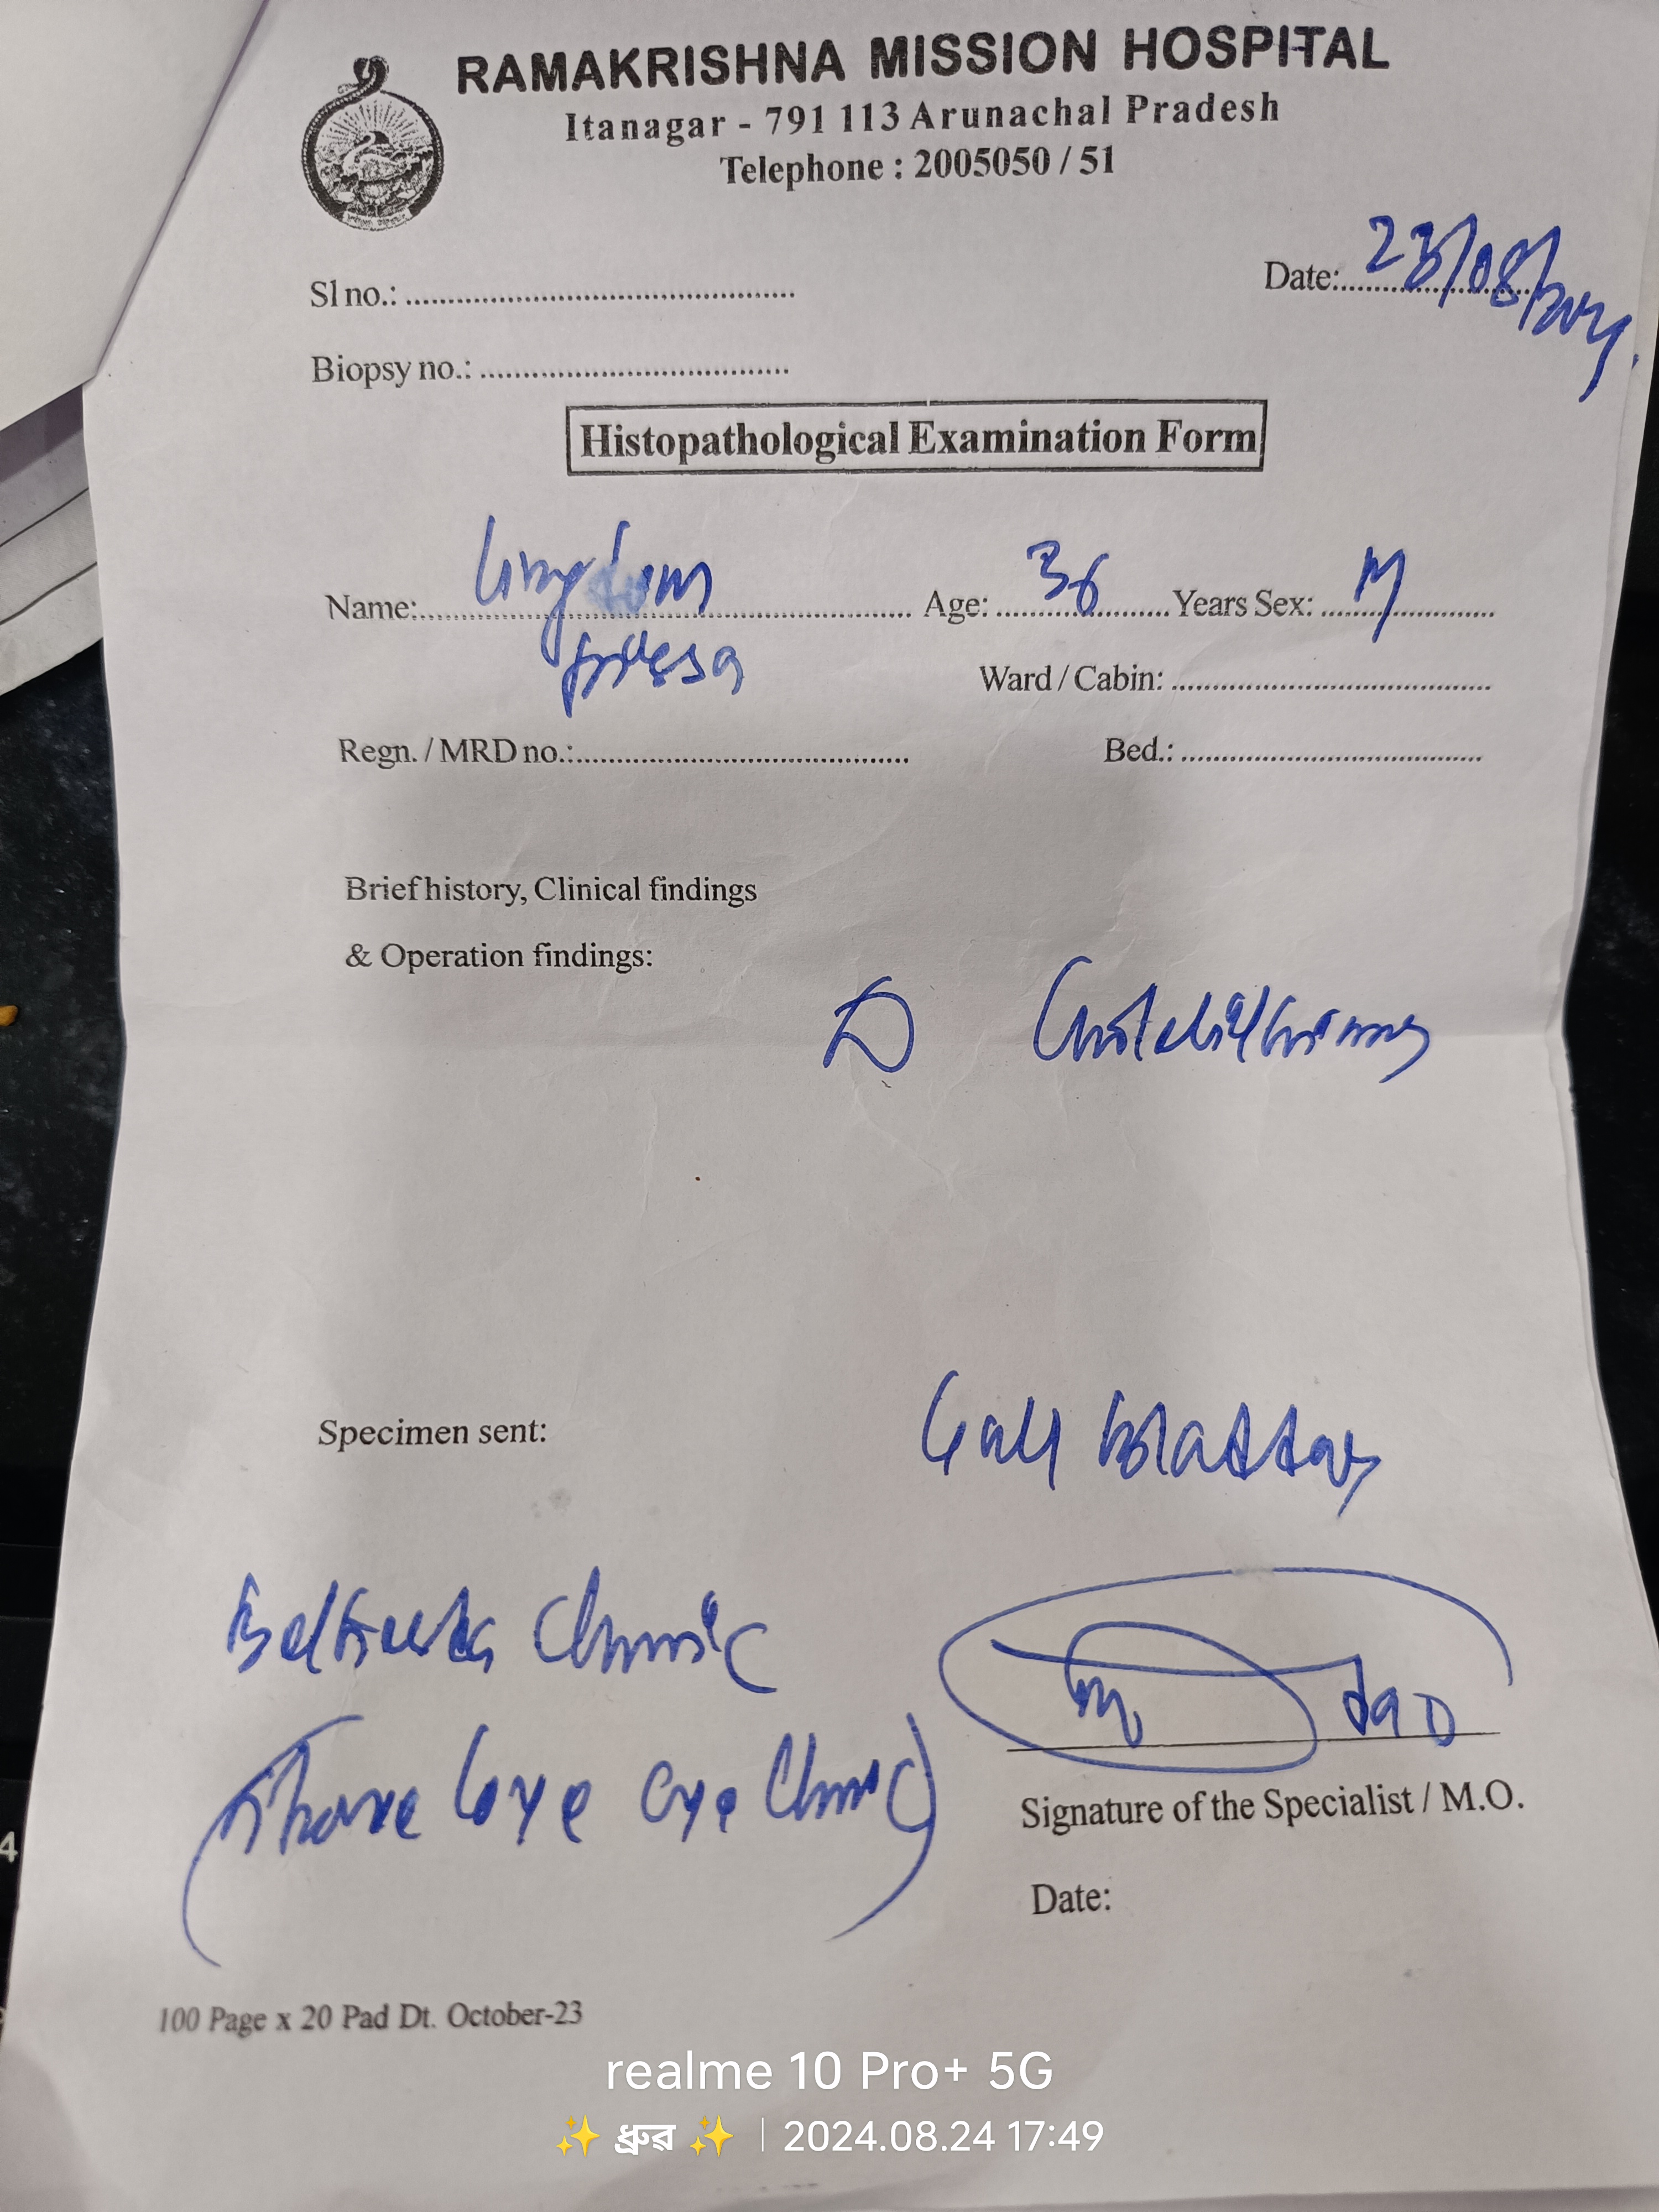 RAMAKRISHNA MISSION HOSPITAL
Itanagar - 791 113 Arunachal Pradesh
Telephone : 2005050 / 51
Sl no.:
Date: 23/08/2024
Biopsy no.:
Histopathological Examination Form
Name: Age: 36 Years Sex: M
Ward / Cabin:
Regn. / MRD no.: Bed.:
Brief history, Clinical findings
& Operation findings:
Specimen sent: Gall bladder
Clinic
eye Clinic)
Signature of the Specialist / M.O.
Date:
100 Page x 20 Pad Dt. October-23
realme 10 Pro+ 5G
✨ ধ্রুব ✨ | 2024.08.24 17:49